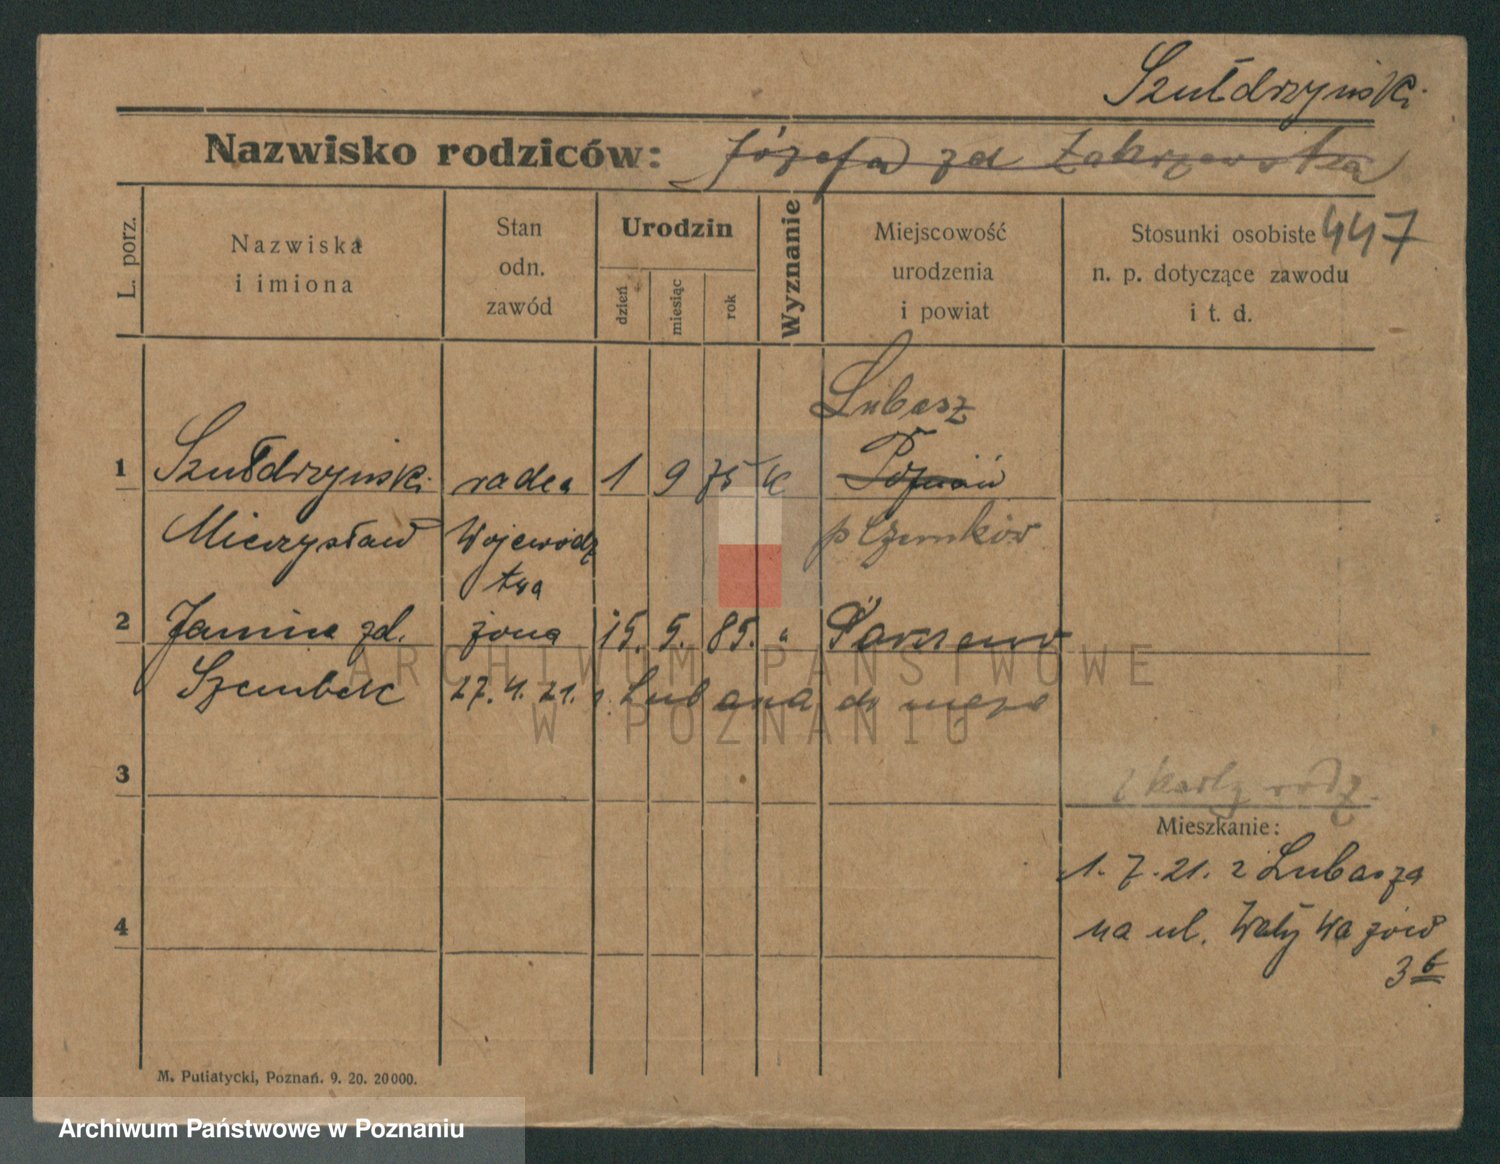 Szułdrzyński
Nazwisko rodziców: Józefa zd Zakrzewska
447
L. porz.
Nazwiska
i imiona
Stan
odn.
zawód
Urodzin
dzień
miesiąc
rok
Wyznanie
Miejscowość
urodzenia
i powiat
Stosunki osobiste
n. p. dotyczące zawodu
i t. d.
Lubasz
1 Szułdrzyński radca 1 9 75 k Poznań
Mieczysław Wojewódz p Czarnków
twa
2 Janina zd. żona 15. 5. 85. "
Szembek 27. 4. 21. z Lubasza do męża
ARCHIWUM PAŃSTWOWE
W POZNANIU
3
z karty rodz.
Mieszkanie:
1. 7. 21. z Lubasza
na ul. Wały Wazów
3
4
M. Putiatycki, Poznań. 9. 20. 20000.
Archiwum Państwowe w Poznaniu